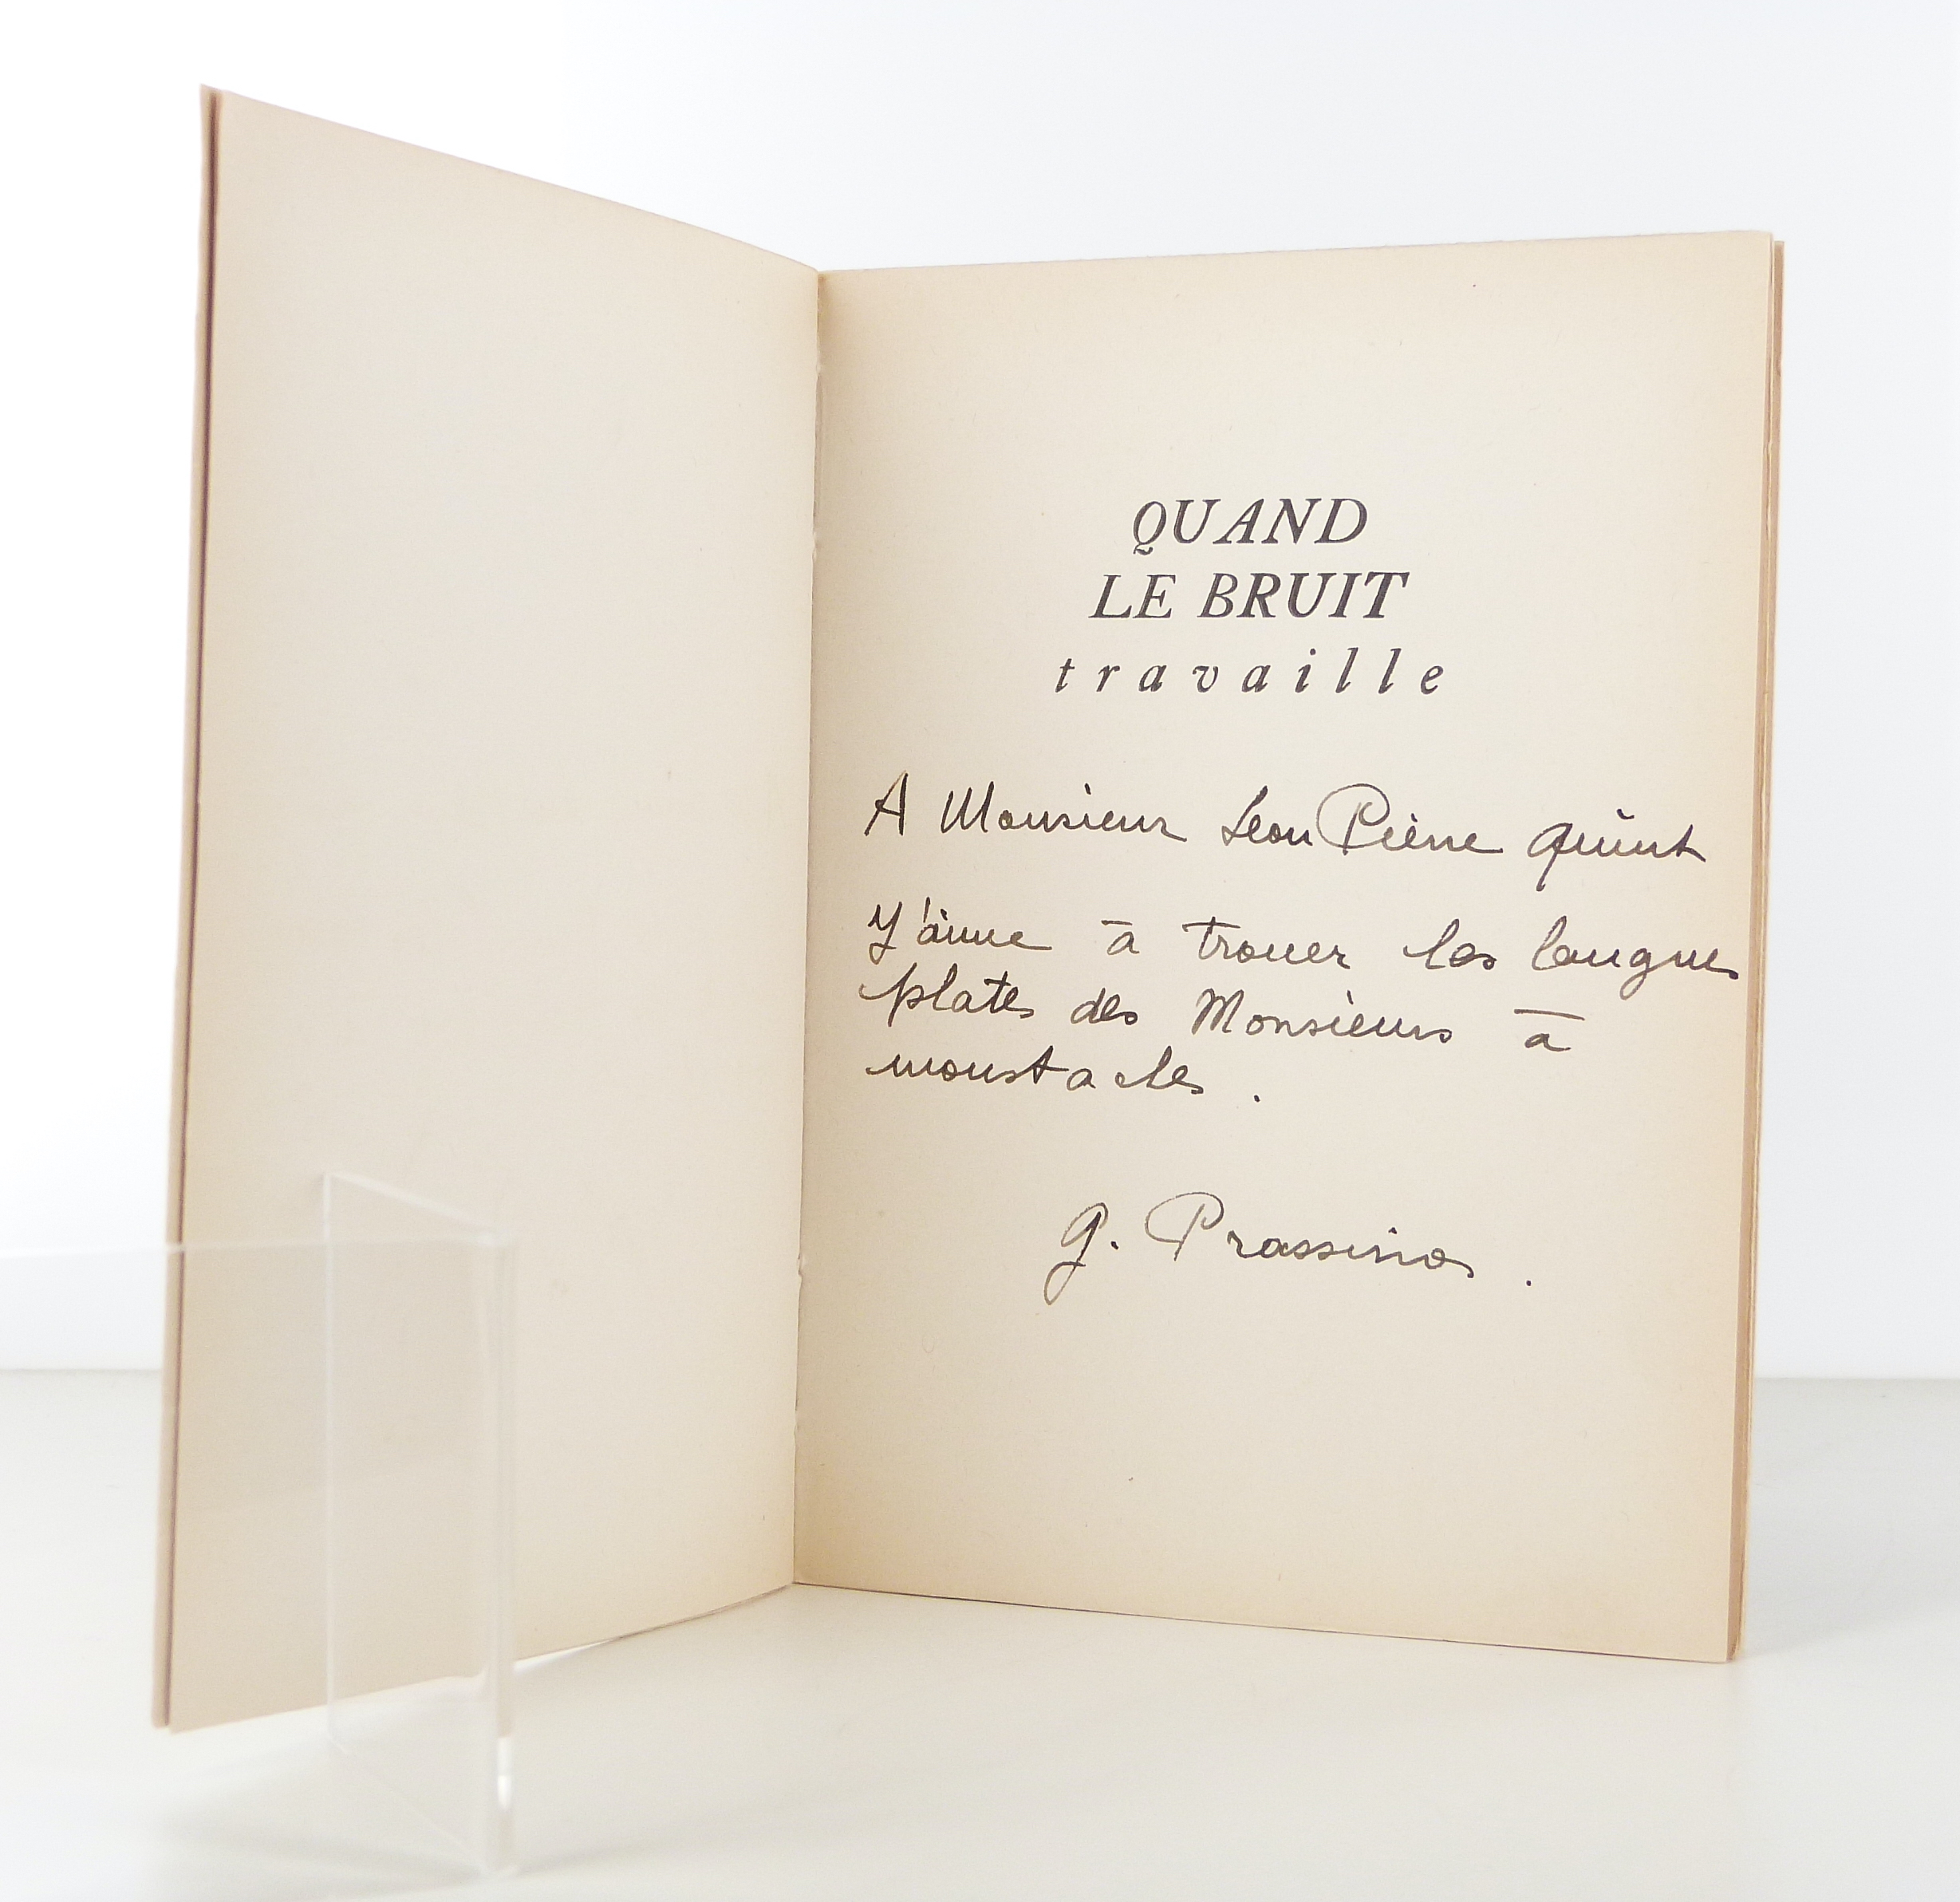 QUAND
LE BRUIT
travaille
A Monsieur Léon Pierre Quint
J'aime à trouer les langues
plates des Monsieurs à
moustaches.
G. Prassinos.